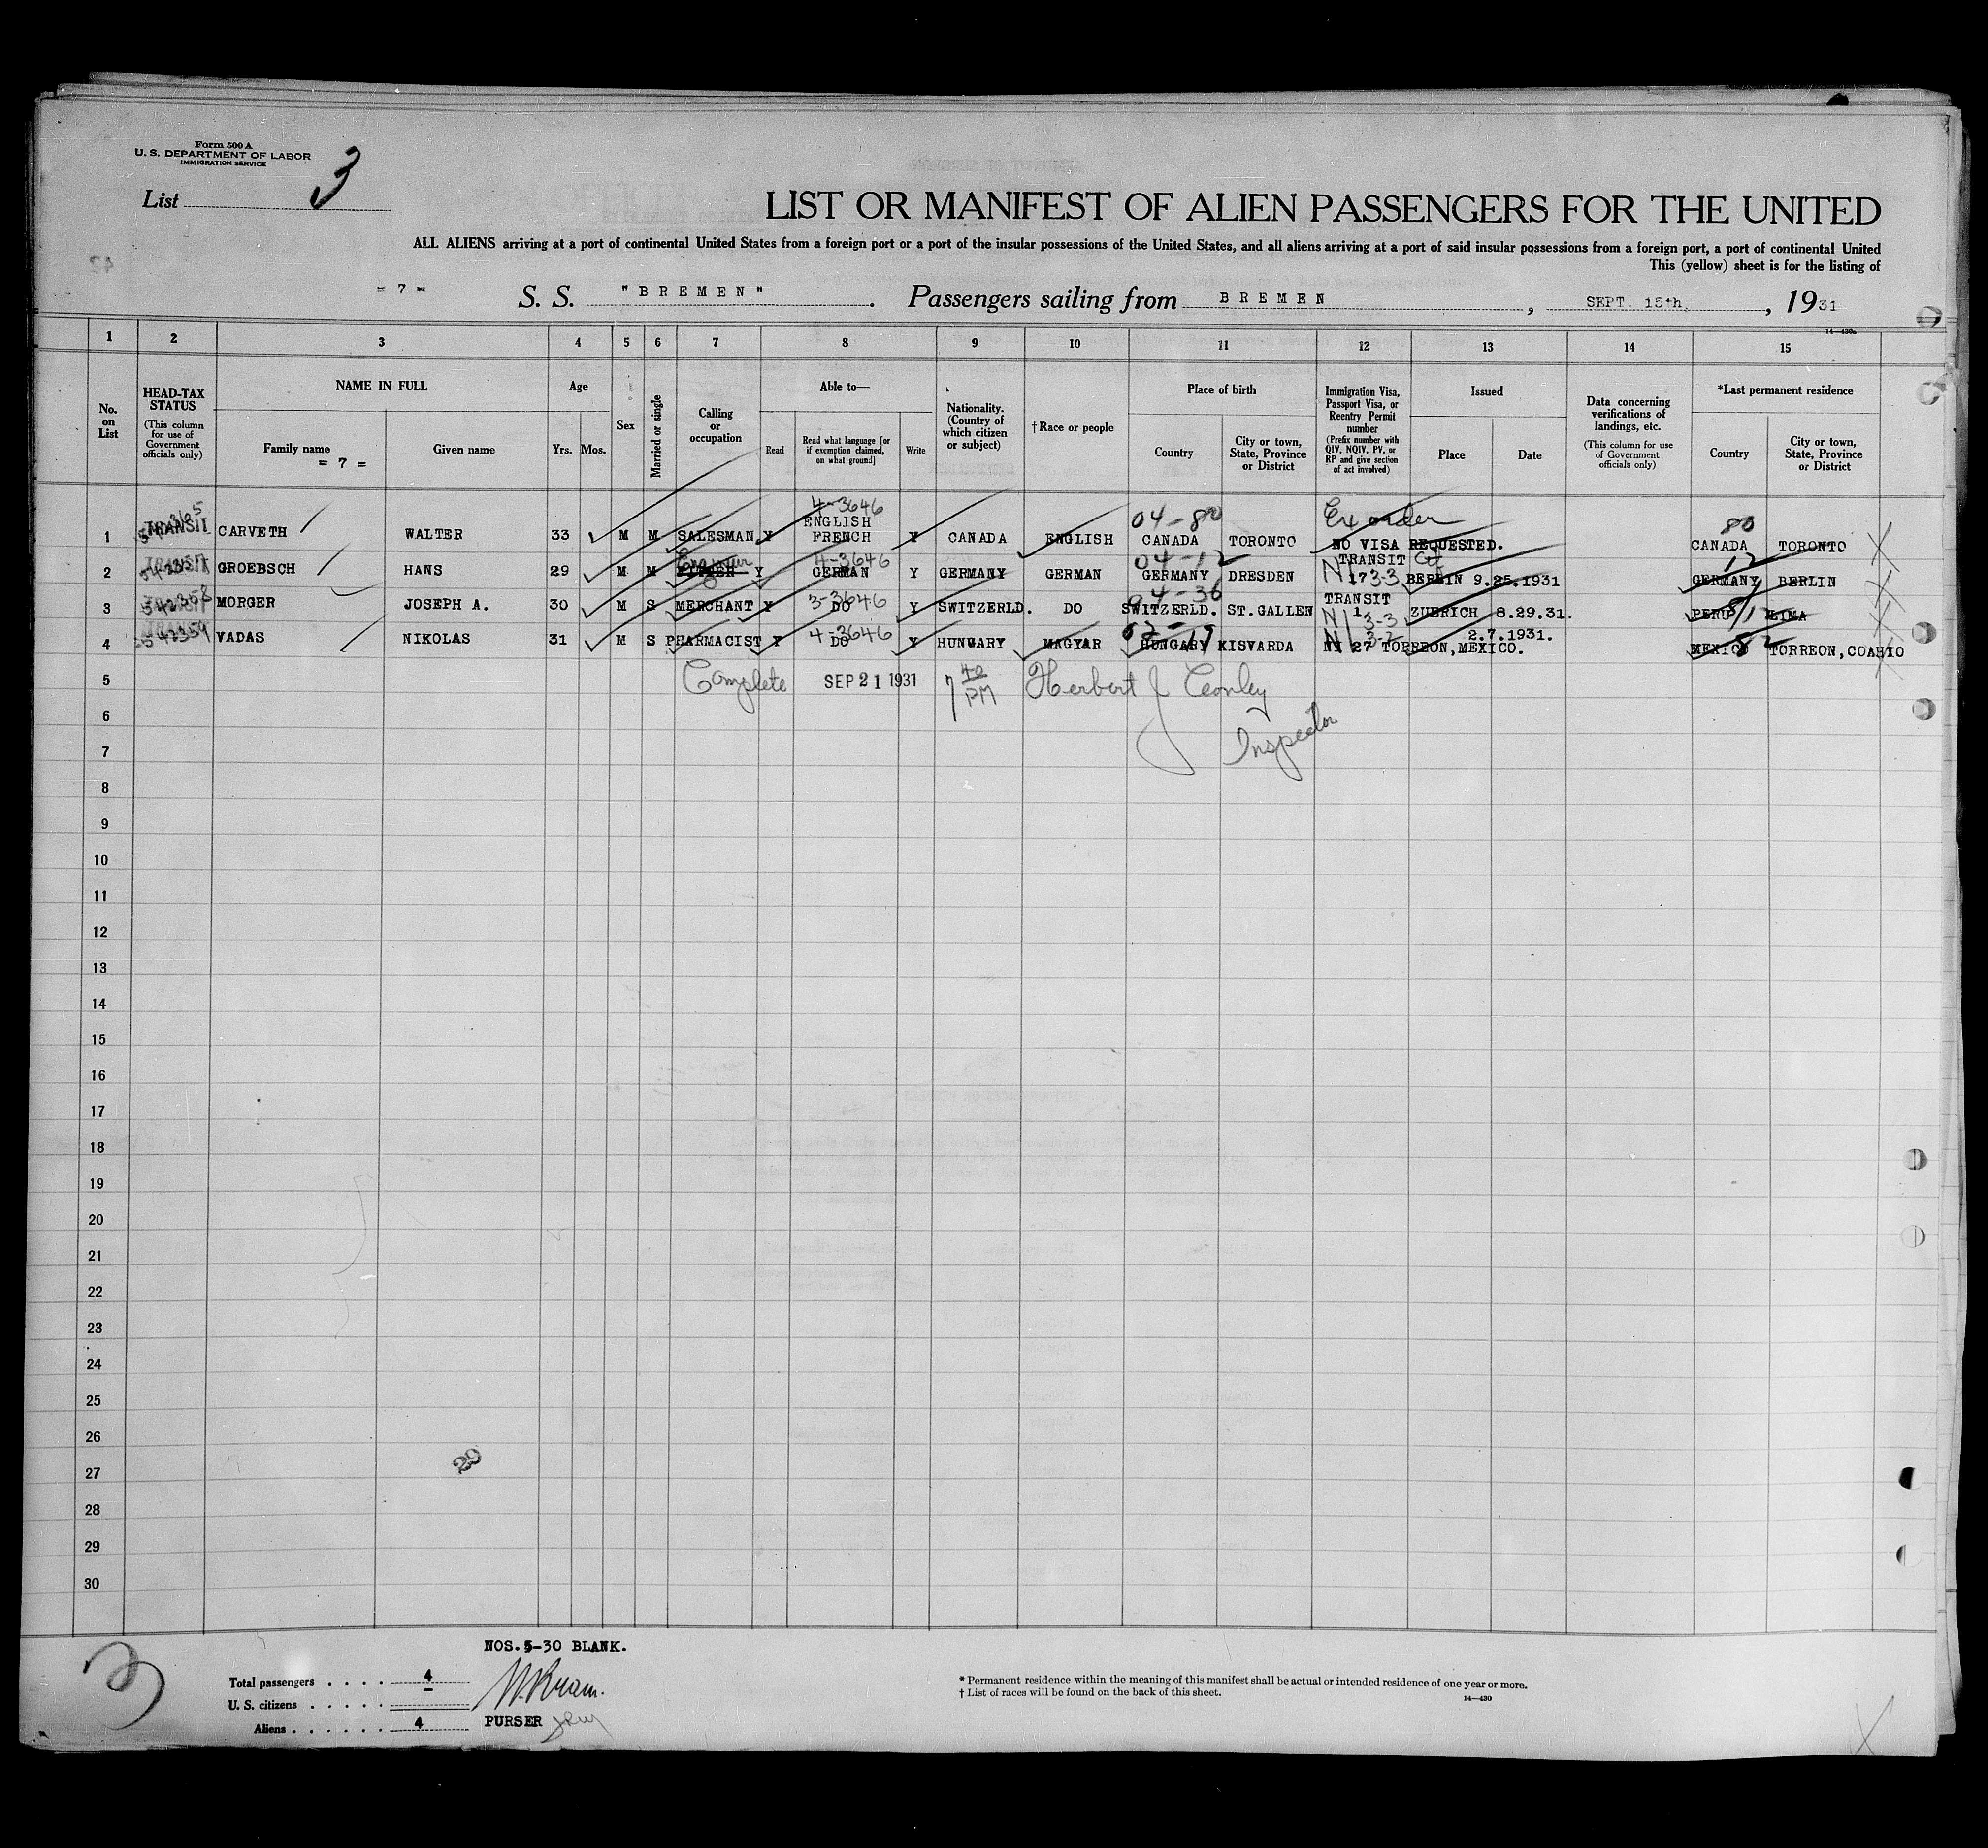 Form 500 A
U. S. DEPARTMENT OF LABOR
IMMIGRATION SERVICE
List 3
LIST OR MANIFEST OF ALIEN PASSENGERS FOR THE UNITED
ALL ALIENS arriving at a port of continental United States from a foreign port or a port of the insular possessions of the United States, and all aliens arriving at a port of said insular possessions from a foreign port, a port of continental United
This (yellow) sheet is for the listing of
= 7 = S. S. "BREMEN". Passengers sailing from BREMEN, SEPT. 15th, 1931
14—430a
1 2 3 4 5 6 7 8 9 10 11 12 13 14 15
No. on List
HEAD-TAX STATUS (This column for use of Government officials only)
NAME IN FULL
Family name = 7 =
Given name
Age
Yrs. Mos.
Sex
Married or single
Calling or occupation
Able to—
Read
Read what language [or if exemption claimed, on what ground]
Write
Nationality. (Country of which citizen or subject)
†Race or people
Place of birth
Country
City or town, State, Province or District
Immigration Visa, Passport Visa, or Reentry Permit number (Prefix number with QIV, NQIV, PV, or RP and give section of act involved)
Issued
Place
Date
Data concerning verifications of landings, etc. (This column for use of Government officials only)
*Last permanent residence
Country
City or town, State, Province or District
4-3646 04-80 Ex order 80
1 TRANSIT CARVETH WALTER 33 M M SALESMAN Y ENGLISH FRENCH Y CANADA ENGLISH CANADA TORONTO NO VISA REQUESTED. CANADA TORONTO
Engineer 4-3646 04-12 TRANSIT 12
2 GROEBSCH HANS 29 M M Y GERMAN Y GERMANY GERMAN GERMANY DRESDEN 173-3 BERLIN 9.25.1931 GERMANY BERLIN
3-3646 04-36 TRANSIT
3 542358 MORGER JOSEPH A. 30 M S MERCHANT Y DO Y SWITZERLD. DO SWITZERLD. ST.GALLEN 1 3-3 ZUERICH 8.29.31. PERU LIMA
4-3646 2.7.1931.
4 542359 VADAS NIKOLAS 31 M S PHARMACIST Y DO Y HUNGARY MAGYAR HUNGARY KISVARDA 27 3-2 TORREON,MEXICO. MEXICO TORREON,COAHIO
5 Complete SEP 21 1931 7 40 PM Herbert J Conley
6
7 Inspector
8
9
10
11
12
13
14
15
16
17
18
19
20
21
22
23
24
25
26
27
28
29
30
NOS.5-30 BLANK.
3
Total passengers . . . . 4
U. S. citizens . . . . . —
Aliens . . . . . . 4
PURSER
* Permanent residence within the meaning of this manifest shall be actual or intended residence of one year or more.
† List of races will be found on the back of this sheet.
14—430